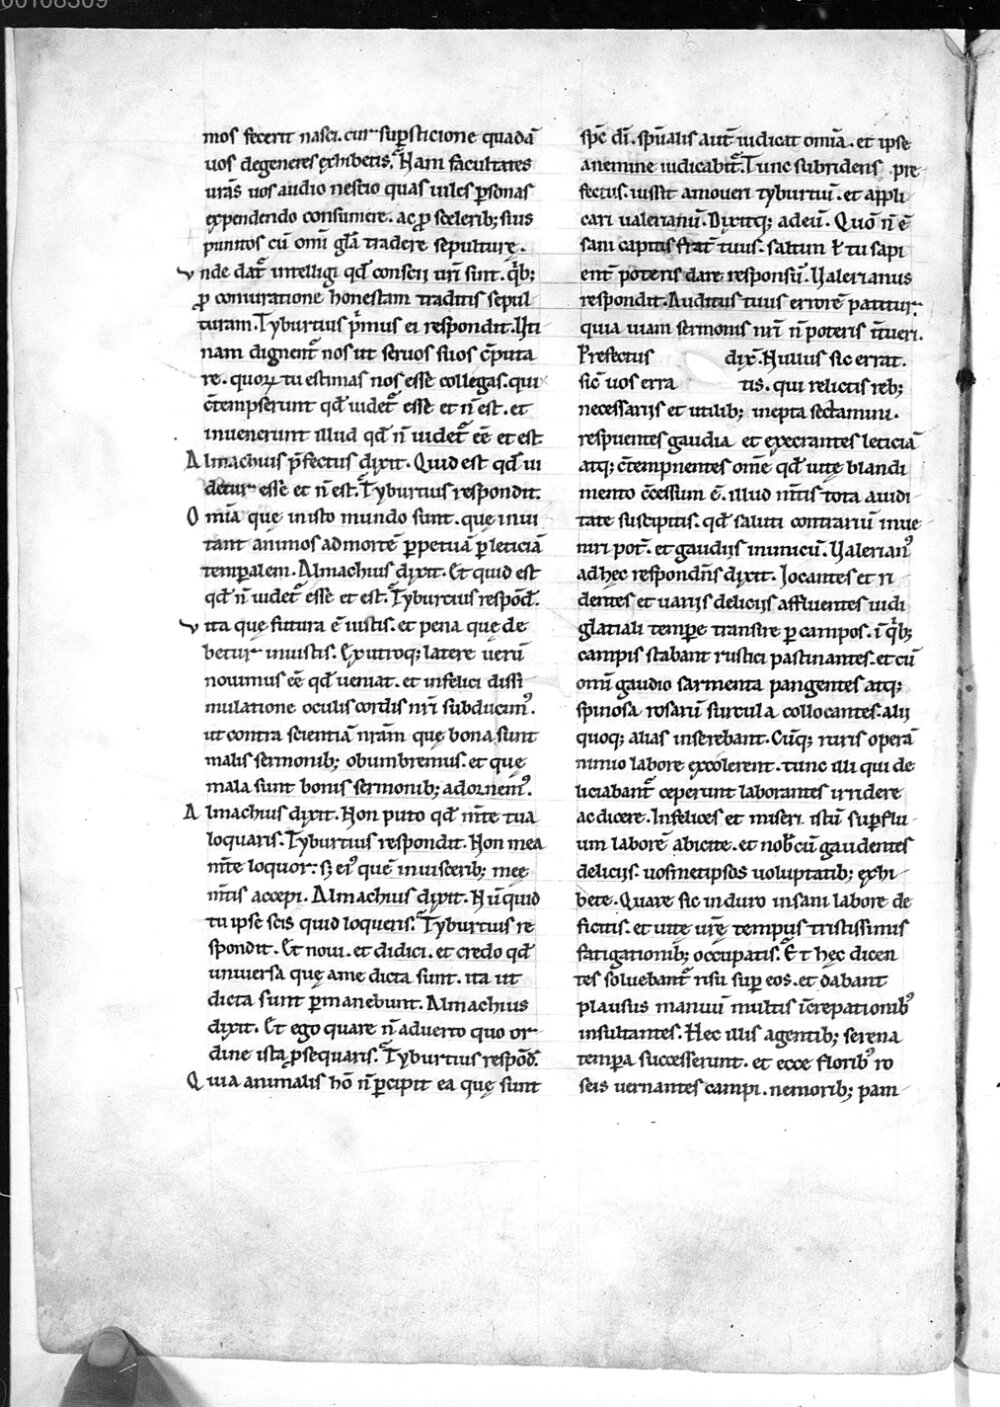 00108309
mos fecerit nasci. cur sup̄sticione quadā
uos degeneres exhibetis. Nam facultates
urās uos audio nescio quas uiles ꝑsonas
expendendo consumere. ac ꝓ scelerib; suis
punitos cū om̄i gl̄a tradere sepulturę.
Vnde dat̄ intelligi qđ conscii ur̄i sint. qͥb;
ꝓ coniuratione honestam traditis sepul
turam. Tyburtius pͥmus ei respondit. Uti
nam dignent̄ nos ut seruos suos c̄puta
re. quoꝝ tu estimas nos esse collegas. qui
c̄tempserunt qđ uidet̄ esse et n̄ est. et
inuenerunt illud qđ n̄ uidet̄ eē et est.
Almachius p̄fectus dixit. Quid est qđ ui
detur esse et n̄ est. Tyburtius respondit.
Omīa que in isto mundo sunt. que inui
tant animos ad mortē ꝑpetuā ꝑ leticiā
temꝑalem. Almachius dixit. Et quid est
qđ n̄ uidet̄ esse et est. Tyburtius respōđ.
Vita que futura ē iustis. et pena que de
betur iniustis. Ex utroq; latere uerū
nouimus eē qđ ueniat. et infelici dissi
mulatione oculis cordis nr̄i subducimꝰ.
ut contra scientiā nrām que bona sunt
malis sermonib; obumbremus. et quę
mala sunt bonis sermonib; adornemꝰ.
Almachius dixit. Non puto qđ m̄te tua
loquaris. Tyburtius respondit. Non mea
m̄te loquor. sꝫ eiꝰ quē in uiscerib; meę
m̄tis accepi. Almachius dixit. Nū quid
tu ipse scis quid loqueris. Tyburtius re
spondit. Et noui. et didici. et credo qđ
uniuersa quę a me dicta sunt. ita ut
dicta sunt ꝑmanebunt. Almachius
dixit. Et ego quare n̄ aduerto quo or
dine ista ꝓsequaris. Tyburtius respōđ.
Quia animalis hō n̄ ꝑcipit ea quę sunt
sp̄c dī. sp̄ualis aut̄ iudicat omīa. et ipse
a nemine iudicabit̄. Tunc subridens pre
fectus. iussit amoueri tyburtiū. et appli
cari ualerianū. Dixitq; ad eū. Quō n̄ ē
sani capitis frat̄ tuus. saltim ł tu sapi
ent̄ poteris dare responsū. Valerianus
respondit. Auditus tuus errorē patitur.
quia uiam sermonis nr̄i n̄ poteris ītueri.
Prefectus dix̄. Nullus sic errat.
sic̄ uos erra tis. qui relictis reb;
necessariis et utilib; inepta sectamini.
respuentes gaudia et execrantes leticiā
atq; c̄tempnentes om̄e qđ uitę blandi
mento c̄cessum ē. illud m̄tis tota auidi
tate suscipitis. qđ saluti contrariū inue
niri pot̄. et gaudiis inimicū. Valerianꝰ
ad hec respondn̄s dixit. Jocantes et ri
dentes et uariis deliciis affluentes uidi
glatiali tempe transire ꝑ campos. ī qͥb;
campis stabant rustici pastinantes. et cū
om̄i gaudio sarmenta pangentes atq;
spinosa rosarū surcula collocantes. alii
quoq; alias inserebant. Cūq; ruris operā
nimio labore excolerent. tunc illi qui de
liciabant̄ ceperunt laborantes irridere
ac dicere. Infelices et miseri. istū suꝑflu
um laborē abicite. et nob̄cū gaudentes
deliciis. uosmetipsos uoluptatib; exhi
bete. Quare sic in duro insani labore de
ficitis. et uitę urę̄ tempus tristissimis
fatigationib; occupatis. Et hęc dicen
tes soluebant̄ risu suꝑ eos. et dabant
plausus manuū multis īcrepationibꝰ
insultantes. Hec illis agentib; serena
tempa successerunt. et ecce floribꝰ ro
seis uernantes campi. nemorib; pam